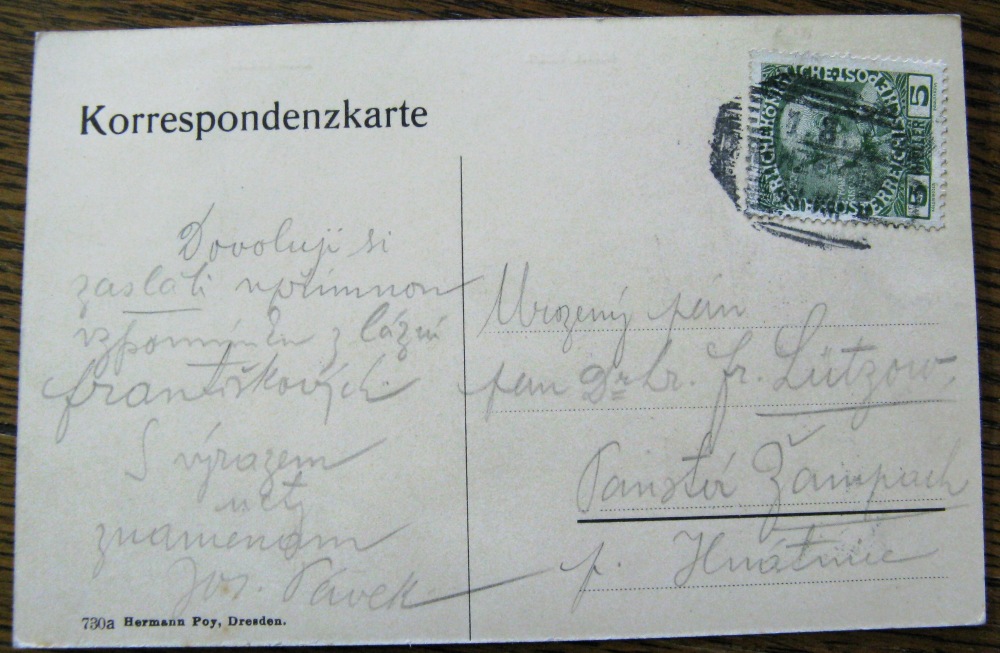 Korrespondenzkarte
5
5
HELLER
Dovoluji si
zaslati upřímnou
vzpomínku z lázní
Františkových.
S výrazem
úcty
znamenám
Jos. Pávek
Urozený pán
pan Dr. hr. Fr. Lützow.
Panství Žampach
p. Hnátnice
730a Hermann Poy, Dresden.